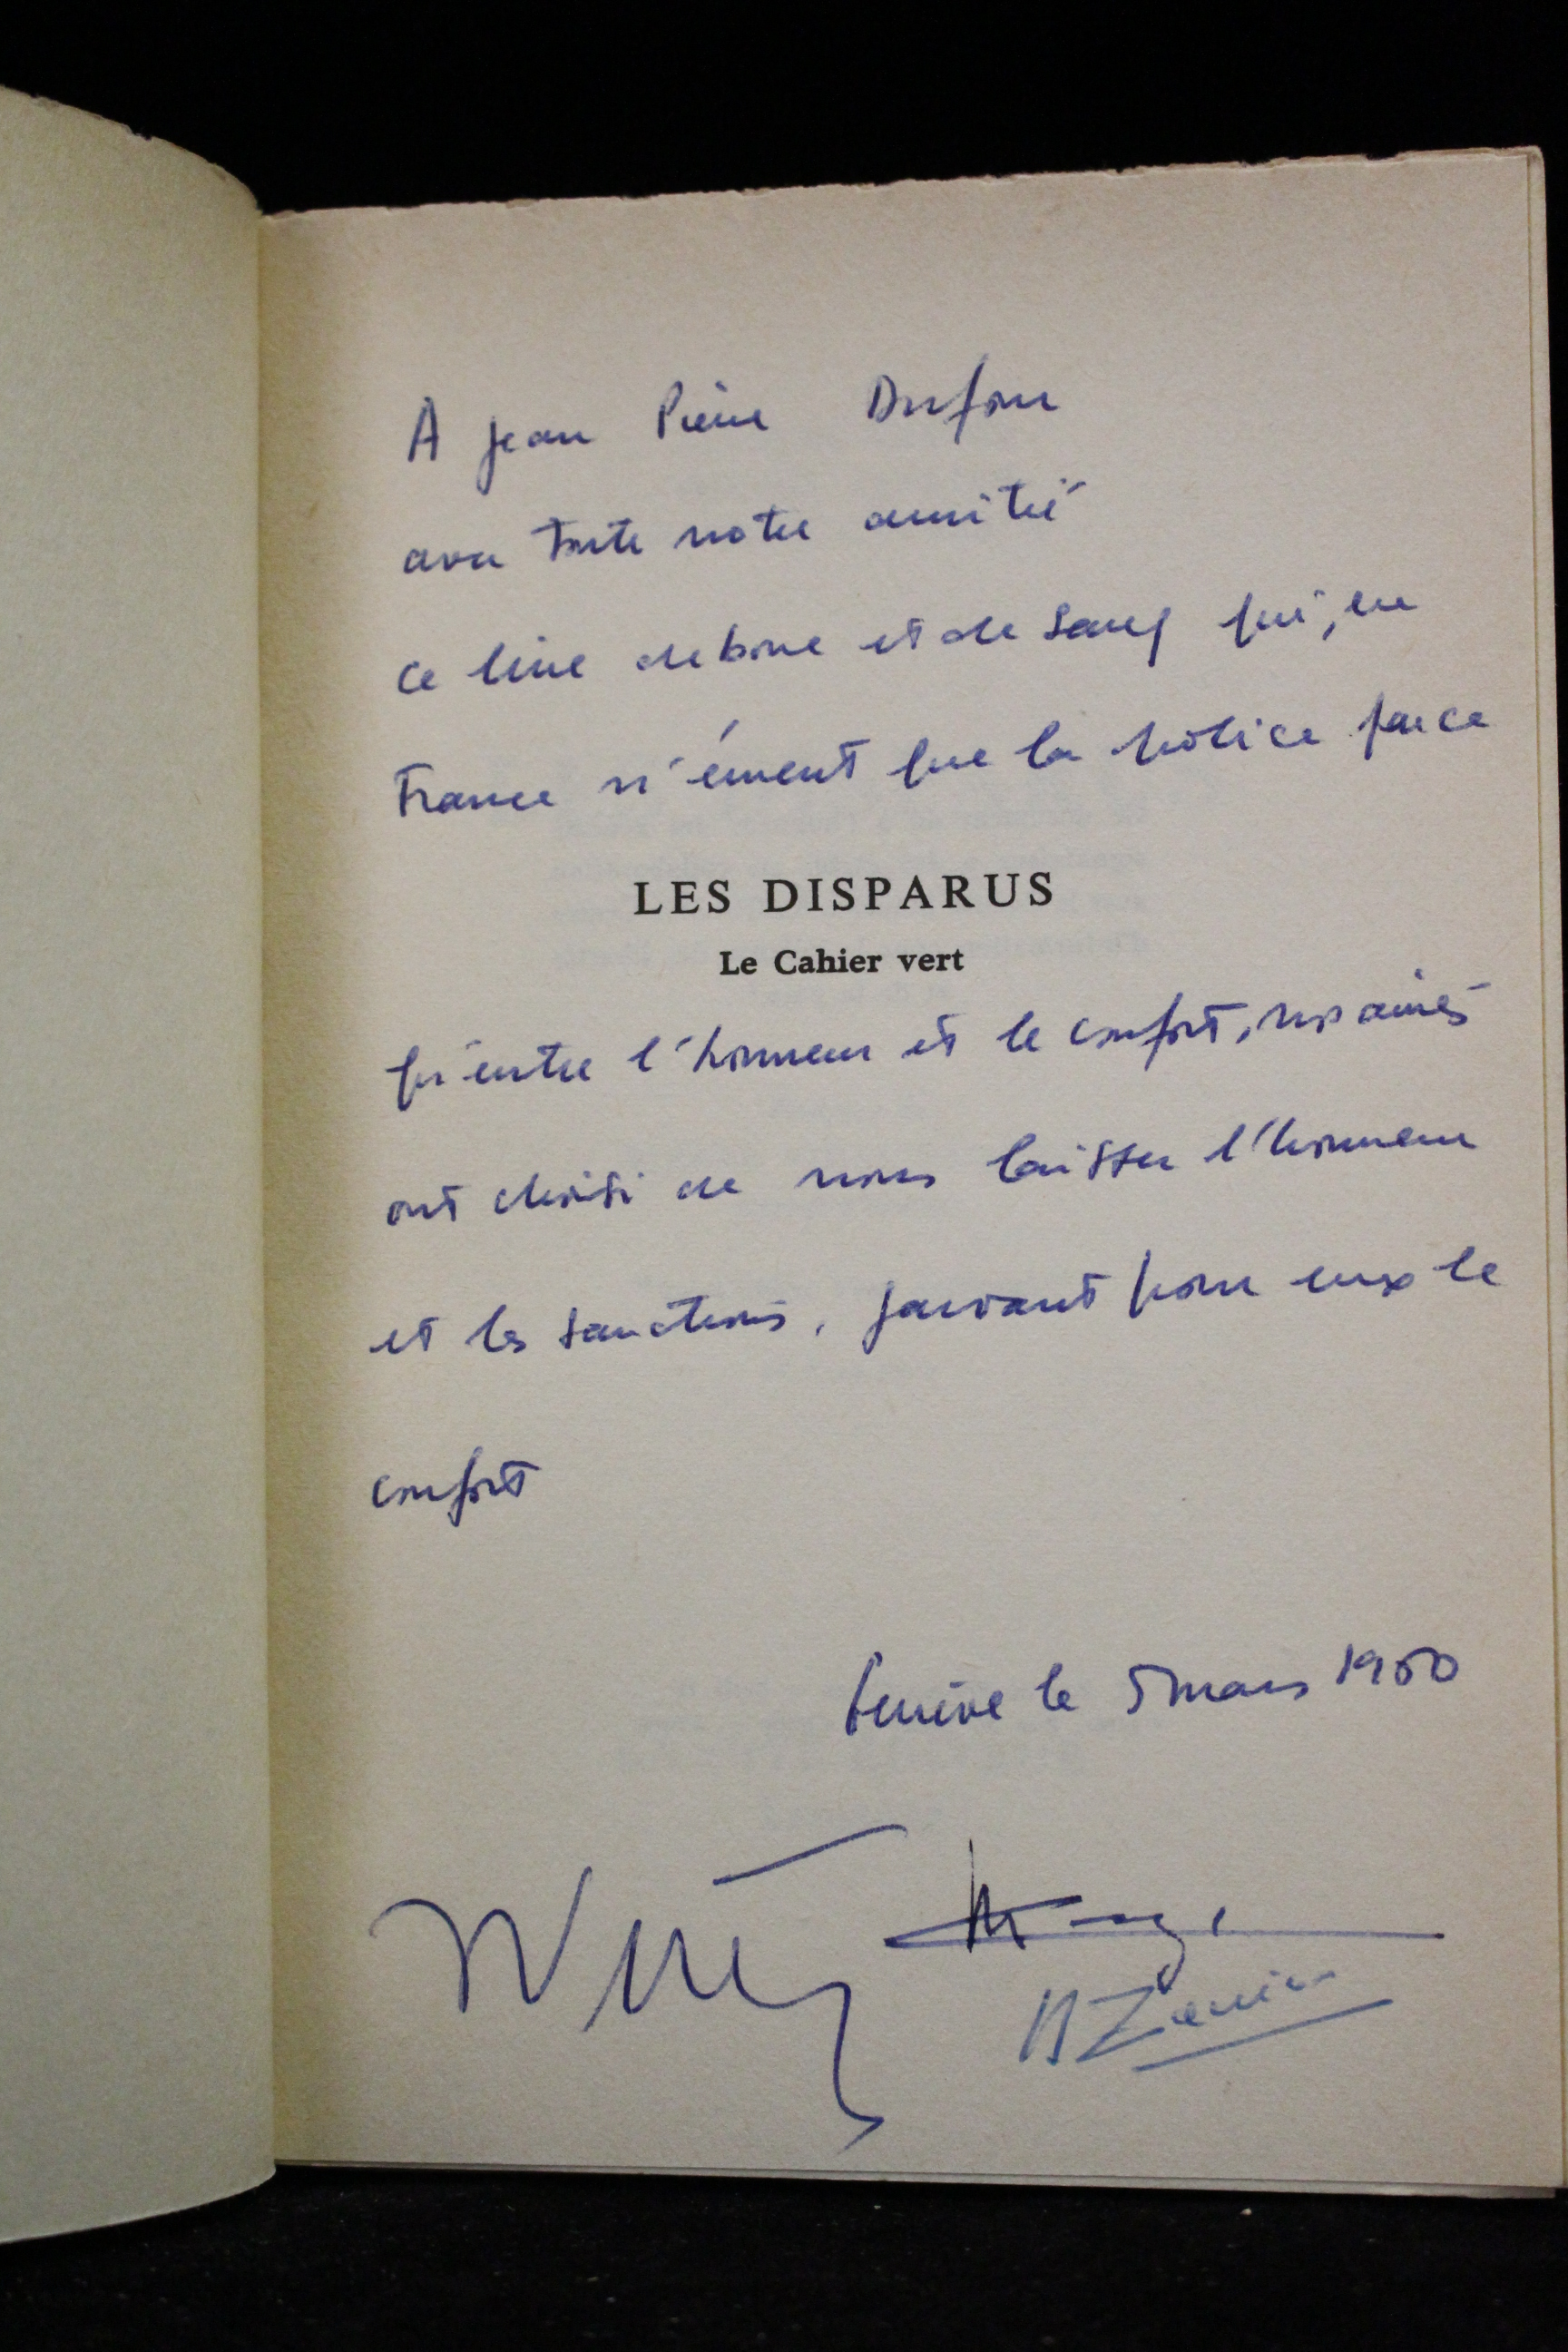 A Jean Pierre Dufour
avec toute notre amitié
ce livre de boue et de sang qui, en
France n'émeut que la police parce
LES DISPARUS
Le Cahier vert
qu'entre l'honneur et le confort, nos ainés
ont choisi de nous laisser l'honneur
et les sanctions, gardant pour eux le
confort
Genève le 5 mars 1960